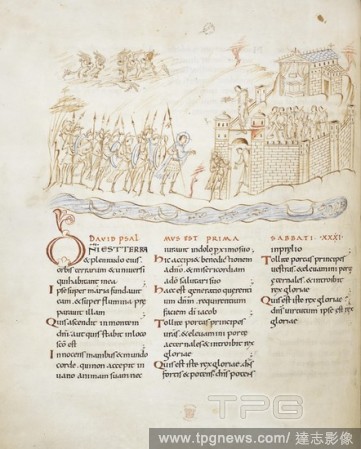 DAVID PSAL
DNI EST TERRA
& plenitudo eius.
orbis terrarum & universi
qui habitant in ea
Ipse super maria fundavit
eam. & super flumina prae
paravit illam
Quis ascendit in montem
dni aut quis stabit in loco
Innocens manibus & mundo
corde. qui non accepit in
vano animam suam nec
MUS EST PRIMA
iuravit in dolo proximo suo
Hic accipi& benedictionem
a dno. & misericordiam
a do salutari suo
Haec est generatio querentium
dnm. requirentium
faciem di iacob
Tollite portas principes
vras. & elevamini portae
aeternales & introibit rex
gloriae
Quis est iste rex gloriae. dns
fortis & potens dns potens
SABBATI .XXXI.
in proelio
Tollite portas principes
vestras. & elevamini portae
aeternales. & introibit
rex gloriae
Quis est iste rex gloriae
dns virtutum ipse est rex
gloriae
TPG
www.tpgnews.com/ 達志影像